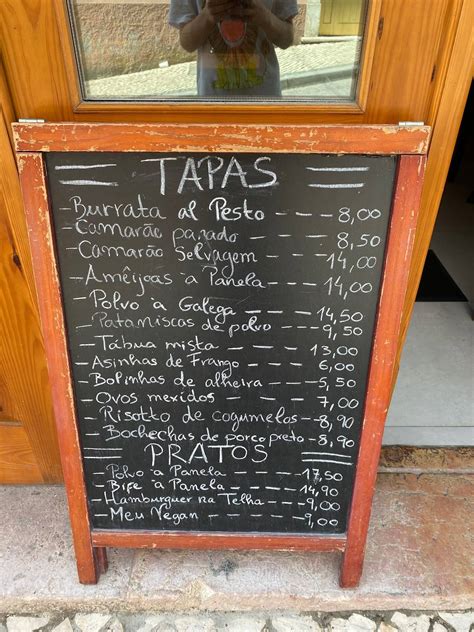 TAPAS
Burrata al Pesto --- 8,00
-Camarão panado --- 8,50
-Camarão Selvagem --- 14,00
-Amêijoas à Panela --- 14,00
-Polvo à Galega --- 14,50
-Pataniscas de polvo --- 9,50
-Tábua mista --- 13,00
-Asinhas de Frango --- 6,00
-Bolinhas de alheira --- 5,50
-Ovos mexidos --- 7,00
-Risotto de cogumelos -- 8,90
-Bochechas de porco preto -- 8,90
PRATOS
-Polvo à Panela --- 17,50
-Bife à Panela --- 14,90
-Hamburguer na Telha --- 9,00
-Meu Vegan --- 9,00